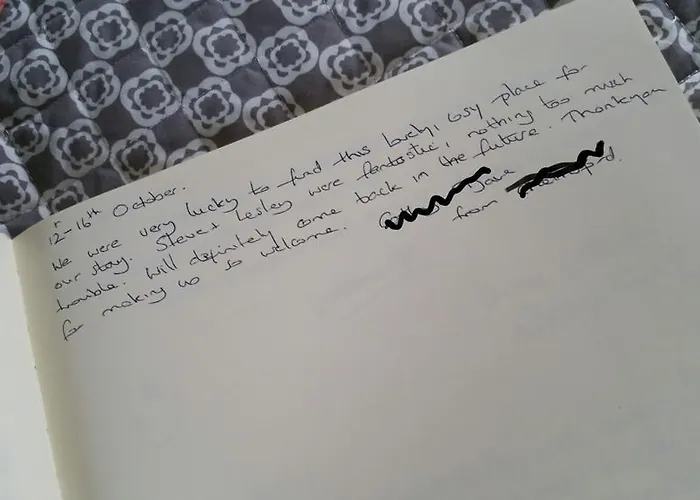 12-16th October.
We were very lucky to find this lovely, cosy place for
our stay. Steve + Lesley were fantastic, nothing too much
trouble. Will definitely come back in the future. Thankyou
for making us so welcome. Jane
from